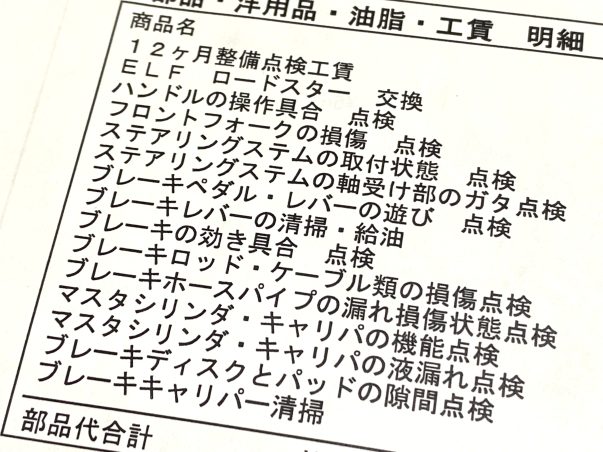 部品・洋用品・油脂・工賃　明細
商品名
12ヶ月整備点検工賃
ELF　ロードスター　交換
ハンドルの操作具合　点検
フロントフォークの損傷　点検
ステアリングステムの取付状態　点検
ステアリングステムの軸受け部のガタ点検
ブレーキペダル・レバーの遊び　点検
ブレーキレバーの清掃・給油
ブレーキの効き具合　点検
ブレーキロッド・ケーブル類の損傷点検
ブレーキホースパイプの漏れ損傷状態点検
マスタシリンダ・キャリパの機能点検
マスタシリンダ・キャリパの液漏れ点検
ブレーキディスクとパッドの隙間点検
ブレーキキャリパー清掃
部品代合計